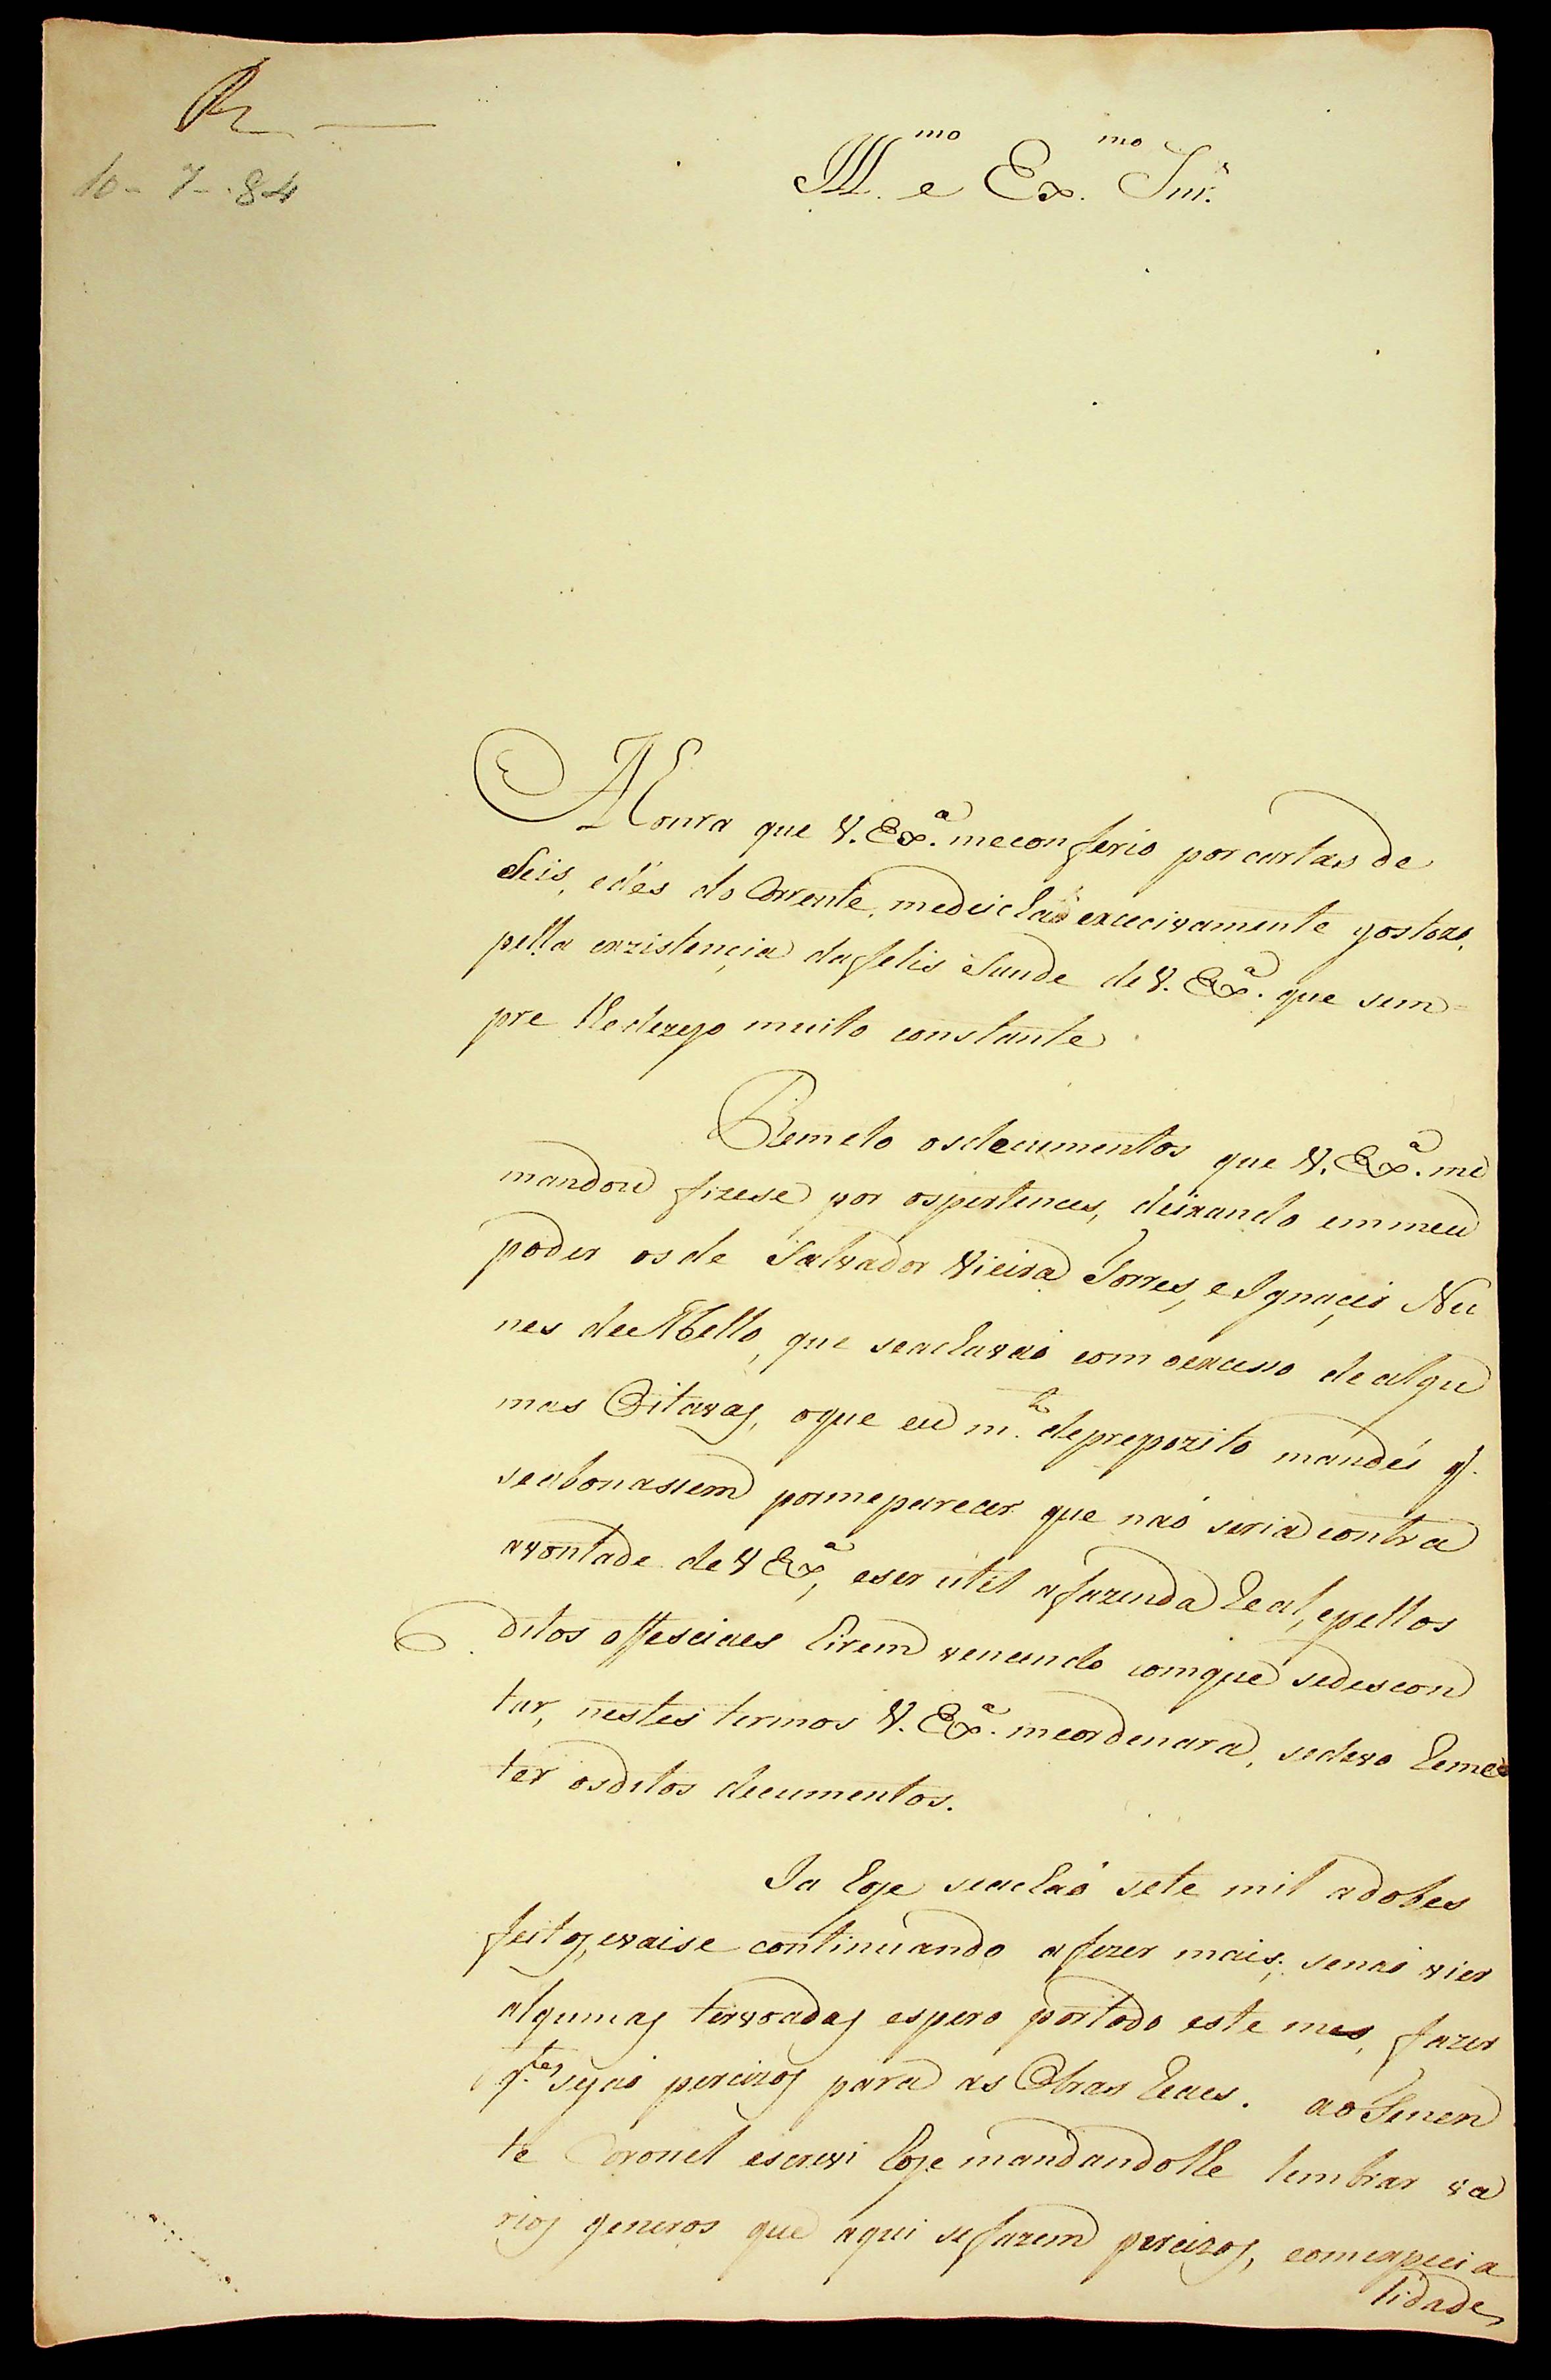 R
10-7-84
Ill.mo e Ex.mo Snr.
A Honra que V. Ex.a meconferio porcartas de
Seis, edés do Corrente, medeichaõ excecivamente gostozo,
pella exzistençia dafelis Saude de V. Ex.a que sem=
pre lhedezejo muito constante
Remeto osdecumentos que V. Ex.a me
mandou fizese por ospertences, deixando emmeu
poder osde Salvador Vieira Torres, e Ignaçio Nu
nes deMello, que seachavaõ com oexcesso dealgu
mas Oitavas, oque eu m.to deprepozito mandei q.
seabonassem pormeparecer que naõ seria contra
avontade de V Ex.a, eser util afazenda Real, epellos
ditos offesciaes hirem vencendo comque sedescon
tar, nestes termos V. Ex.a meordenara, sedevo Reme
ter osditos decumentos.
Ja hoje seachaõ sete mil adobes
feitos, evaise continuando afezer mais; senaõ vier
algumas tervoadas espero portodo este mes, fazer
q.tes sejaõ percizos para as Obras Reaes. ao Tenen
te Coronel escrevi hoje mandandolhe lembrar va
rios generos que aqui sefazem percizos, comexpecia
lidade